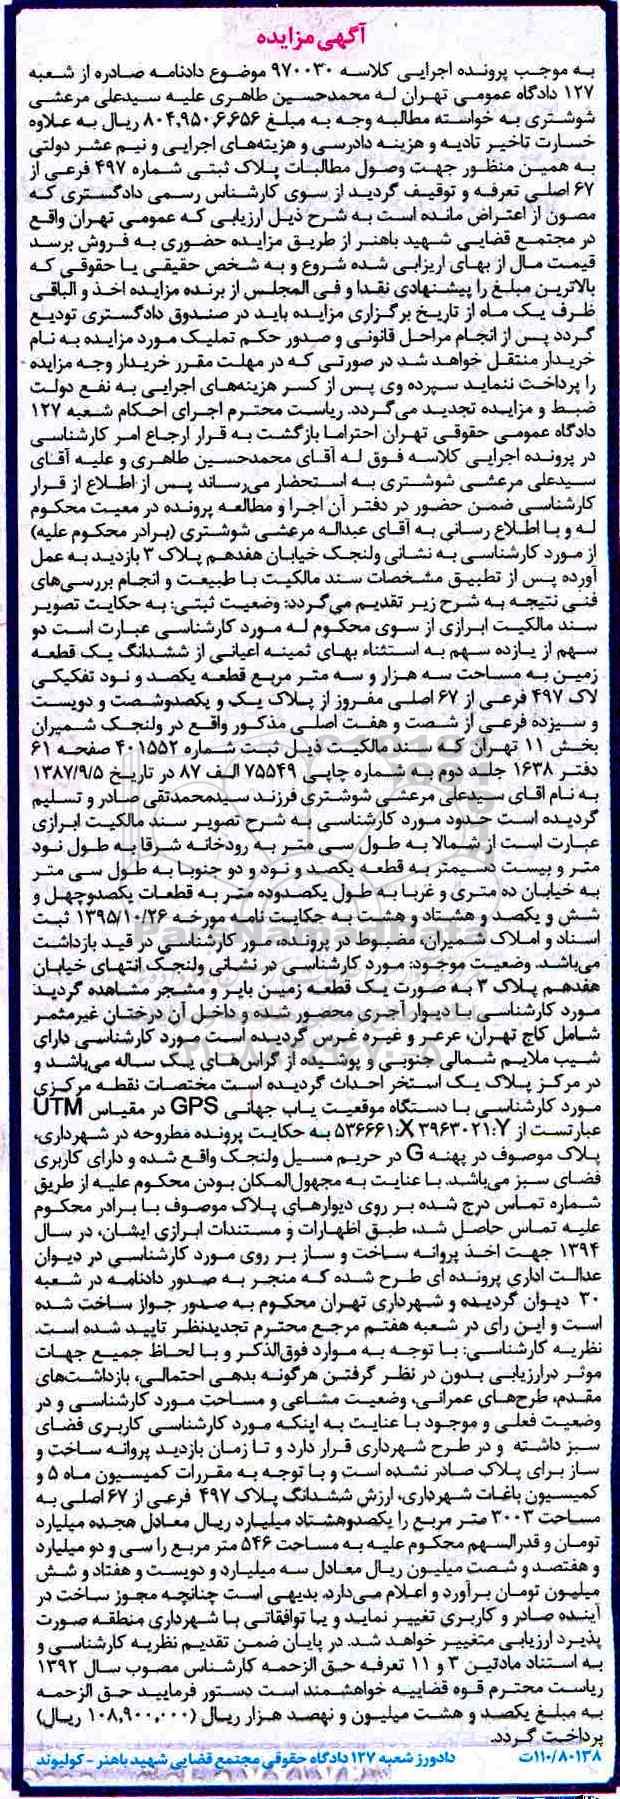 آگهی مزایده
به موجب پرونده اجرایی کلاسه ۹۷۰۰۳۰ موضوع دادنامه صادره از شعبه
۱۲۷ دادگاه عمومی تهران له محمدحسین طاهری علیه سیدعلی مرعشی
شوشتری به خواسته مطالبه وجه به مبلغ ۸۰۴,۹۵۰,۶,۶۵۶ ریال به علاوه
خسارت تاخیر تادیه و هزینه دادرسی و هزینه‌های اجرایی و نیم عشر دولتی
به همین منظور جهت وصول مطالبات پلاک ثبتی شماره ۴۹۷ فرعی از
۶۷ اصلی تعرفه و توقیف گردید از سوی کارشناس رسمی دادگستری که
مصون از اعتراض مانده است به شرح ذیل ارزیابی که عمومی تهران واقع
در مجتمع قضایی شهید باهنر از طریق مزایده حضوری به فروش برسد
قیمت مال از بهای اریزابی شده شروع و به شخص حقیقی یا حقوقی که
بالاترین مبلغ را پیشنهادی نقدا و فی المجلس از برنده مزایده اخذ و الباقی
ظرف یک ماه از تاریخ برگزاری مزایده باید در صندوق دادگستری تودیع
گردد پس از انجام مراحل قانونی و صدور حکم تملیک مورد مزایده به نام
خریدار منتقل خواهد شد در صورتی که در مهلت مقرر خریدار وجه مزایده
را پرداخت ننماید سپرده وی پس از کسر هزینه‌های اجرایی به نفع دولت
ضبط و مزایده تجدید می‌گردد. ریاست محترم اجرای احکام شعبه ۱۲۷
دادگاه عمومی حقوقی تهران احتراما بازگشت به قرار ارجاع امر کارشناسی
در پرونده اجرایی کلاسه فوق له آقای محمدحسین طاهری و علیه آقای
سیدعلی مرعشی شوشتری به استحضار می‌رساند پس از اطلاع از قرار
کارشناسی ضمن حضور در دفتر آن اجرا و مطالعه پرونده در معیت محکوم
له و با اطلاع رسانی به آقای عبداله مرعشی شوشتری (برادر محکوم علیه)
از مورد کارشناسی به نشانی ولنجک خیابان هفدهم پلاک ۳ بازدید به عمل
آورده پس از تطبیق مشخصات سند مالکیت با طبیعت و انجام بررسی‌های
فنی نتیجه به شرح زیر تقدیم می‌گردد: وضعیت ثبتی: به حکایت تصویر
سند مالکیت ابرازی از سوی محکوم له مورد کارشناسی عبارت است دو
سهم از یازده سهم به استثناء بهای ثمینه اعیانی از ششدانگ یک قطعه
زمین به مساحت سه هزار و سه متر مربع قطعه یکصد و نود تفکیکی
لاک ۴۹۷ فرعی از ۶۷ اصلی مفروز از پلاک یک و یکصدوشصت و دویست
و سیزده فرعی از شصت و هفت اصلی مذکور واقع در ولنجک شمیران
بخش ۱۱ تهران که سند مالکیت ذیل ثبت شماره ۴۰۱۵۵۲ صفحه ۶۱
دفتر ۱۶۳۸ جلد دوم به شماره چاپی ۷۵۵۴۹ الف ۸۷ در تاریخ ۱۳۸۷/۹/۵
به نام اقای سیدعلی مرعشی شوشتری فرزند سیدمحمدتقی صادر و تسلیم
گردیده است حدود مورد کارشناسی به شرح تصویر سند مالکیت ابرازی
عبارت است از شمالا به طول سی متر به رودخانه شرقا به طول نود
متر و بیست دسیمتر به قطعه یکصد و نود و دو جنوبا به طول سی متر
به خیابان ده متری و غربا به طول یکصدوده متر به قطعات یکصدوچهل و
شش و یکصد و هشتاد و هشت به حکایت نامه مورخه ۱۳۹۵/۱۰/۲۶ ثبت
اسناد و املاک شمیران، مضبوط در پرونده، مور کارشناسی در قید بازداشت
می‌باشد. وضعیت موجود: مورد کارشناسی در نشانی ولنجک انتهای خیابان
هفدهم پلاک ۳ به صورت یک قطعه زمین بایر و مشجر مشاهده گردید
مورد کارشناسی با دیوار آجری محصور شده و داخل آن درختان غیرمثمر
شامل کاج تهران، عرعر و غیره غرس گردیده است مورد کارشناسی دارای
شیب ملایم شمالی جنوبی و پوشیده از گراس‌های یک ساله می‌باشد و
در مرکز پلاک یک استخر احداث گردیده است مختصات نقطه مرکزی
مورد کارشناسی با دستگاه موقعیت یاب جهانی GPS در مقیاس UTM
عبارتست از X:۵۳۶۶۶۱ Y:۳۹۶۳۰۲۱ به حکایت پرونده مطروحه در شهرداری،
پلاک موصوف در پهنه G در حریم مسیل ولنجک واقع شده و دارای کاربری
فضای سبز می‌باشد. با عنایت به مجهول‌المکان بودن محکوم علیه از طریق
شماره تماس درج شده بر روی دیوارهای پلاک موصوف با برادر محکوم
علیه تماس حاصل شد، طبق اظهارات و مستندات ابرازی ایشان، در سال
۱۳۹۴ جهت اخذ پروانه ساخت و ساز بر روی مورد کارشناسی در دیوان
عدالت اداری پرونده ای طرح شده که منجر به صدور دادنامه در شعبه
۳۰ دیوان گردیده و شهرداری تهران محکوم به صدور جواز ساخت شده
است و این رای در شعبه هفتم مرجع محترم تجدیدنظر تایید شده است.
نظریه کارشناسی: با توجه به موارد فوق‌الذکر و با لحاظ جمیع جهات
موثر درارزیابی بدون در نظر گرفتن هرگونه بدهی احتمالی، بازداشت‌های
مقدم، طرح‌های عمرانی، وضعیت مشاعی و مساحت مورد کارشناسی و در
وضعیت فعلی و موجود با عنایت به اینکه مورد کارشناسی کاربری فضای
سبز داشته و در طرح شهرداری قرار دارد و تا زمان بازدید پروانه ساخت و
ساز برای پلاک صادر نشده است و با توجه به مقررات کمیسیون ماه ۵ و
کمیسیون باغات شهرداری، ارزش ششدانگ پلاک ۴۹۷ فرعی از ۶۷ اصلی به
مساحت ۳۰۰۳ متر مربع را یکصدوهشتاد میلیارد ریال معادل هجده میلیارد
تومان و قدرالسهم محکوم علیه به مساحت ۵۴۶ متر مربع را سی و دو میلیارد
و هفتصد و شصت میلیون ریال معادل سه میلیارد و دویست و هفتاد و شش
میلیون تومان برآورد و اعلام می‌دارد. بدیهی است چنانچه مجوز ساخت در
آینده صادر و کاربری تغییر نماید و یا توافقاتی با شهرداری منطقه صورت
پذیرد ارزیابی متغییر خواهد شد. در پایان ضمن تقدیم نظریه کارشناسی و
به استناد مادتین ۳ و ۱۱ تعرفه حق الزحمه کارشناس مصوب سال ۱۳۹۲
ریاست محترم قوه قضاییه خواهشمند است دستور فرمایید حق الزحمه
به مبلغ یکصد و هشت میلیون و نهصد هزار ریال (۱۰۸,۹۰۰,۰۰۰ ریال)
پرداخت گردد.
۱۱۰/۸۰۱۳۸ت دادورز شعبه ۱۲۷ دادگاه حقوقی مجتمع قضایی شهید باهنر - کولیوند